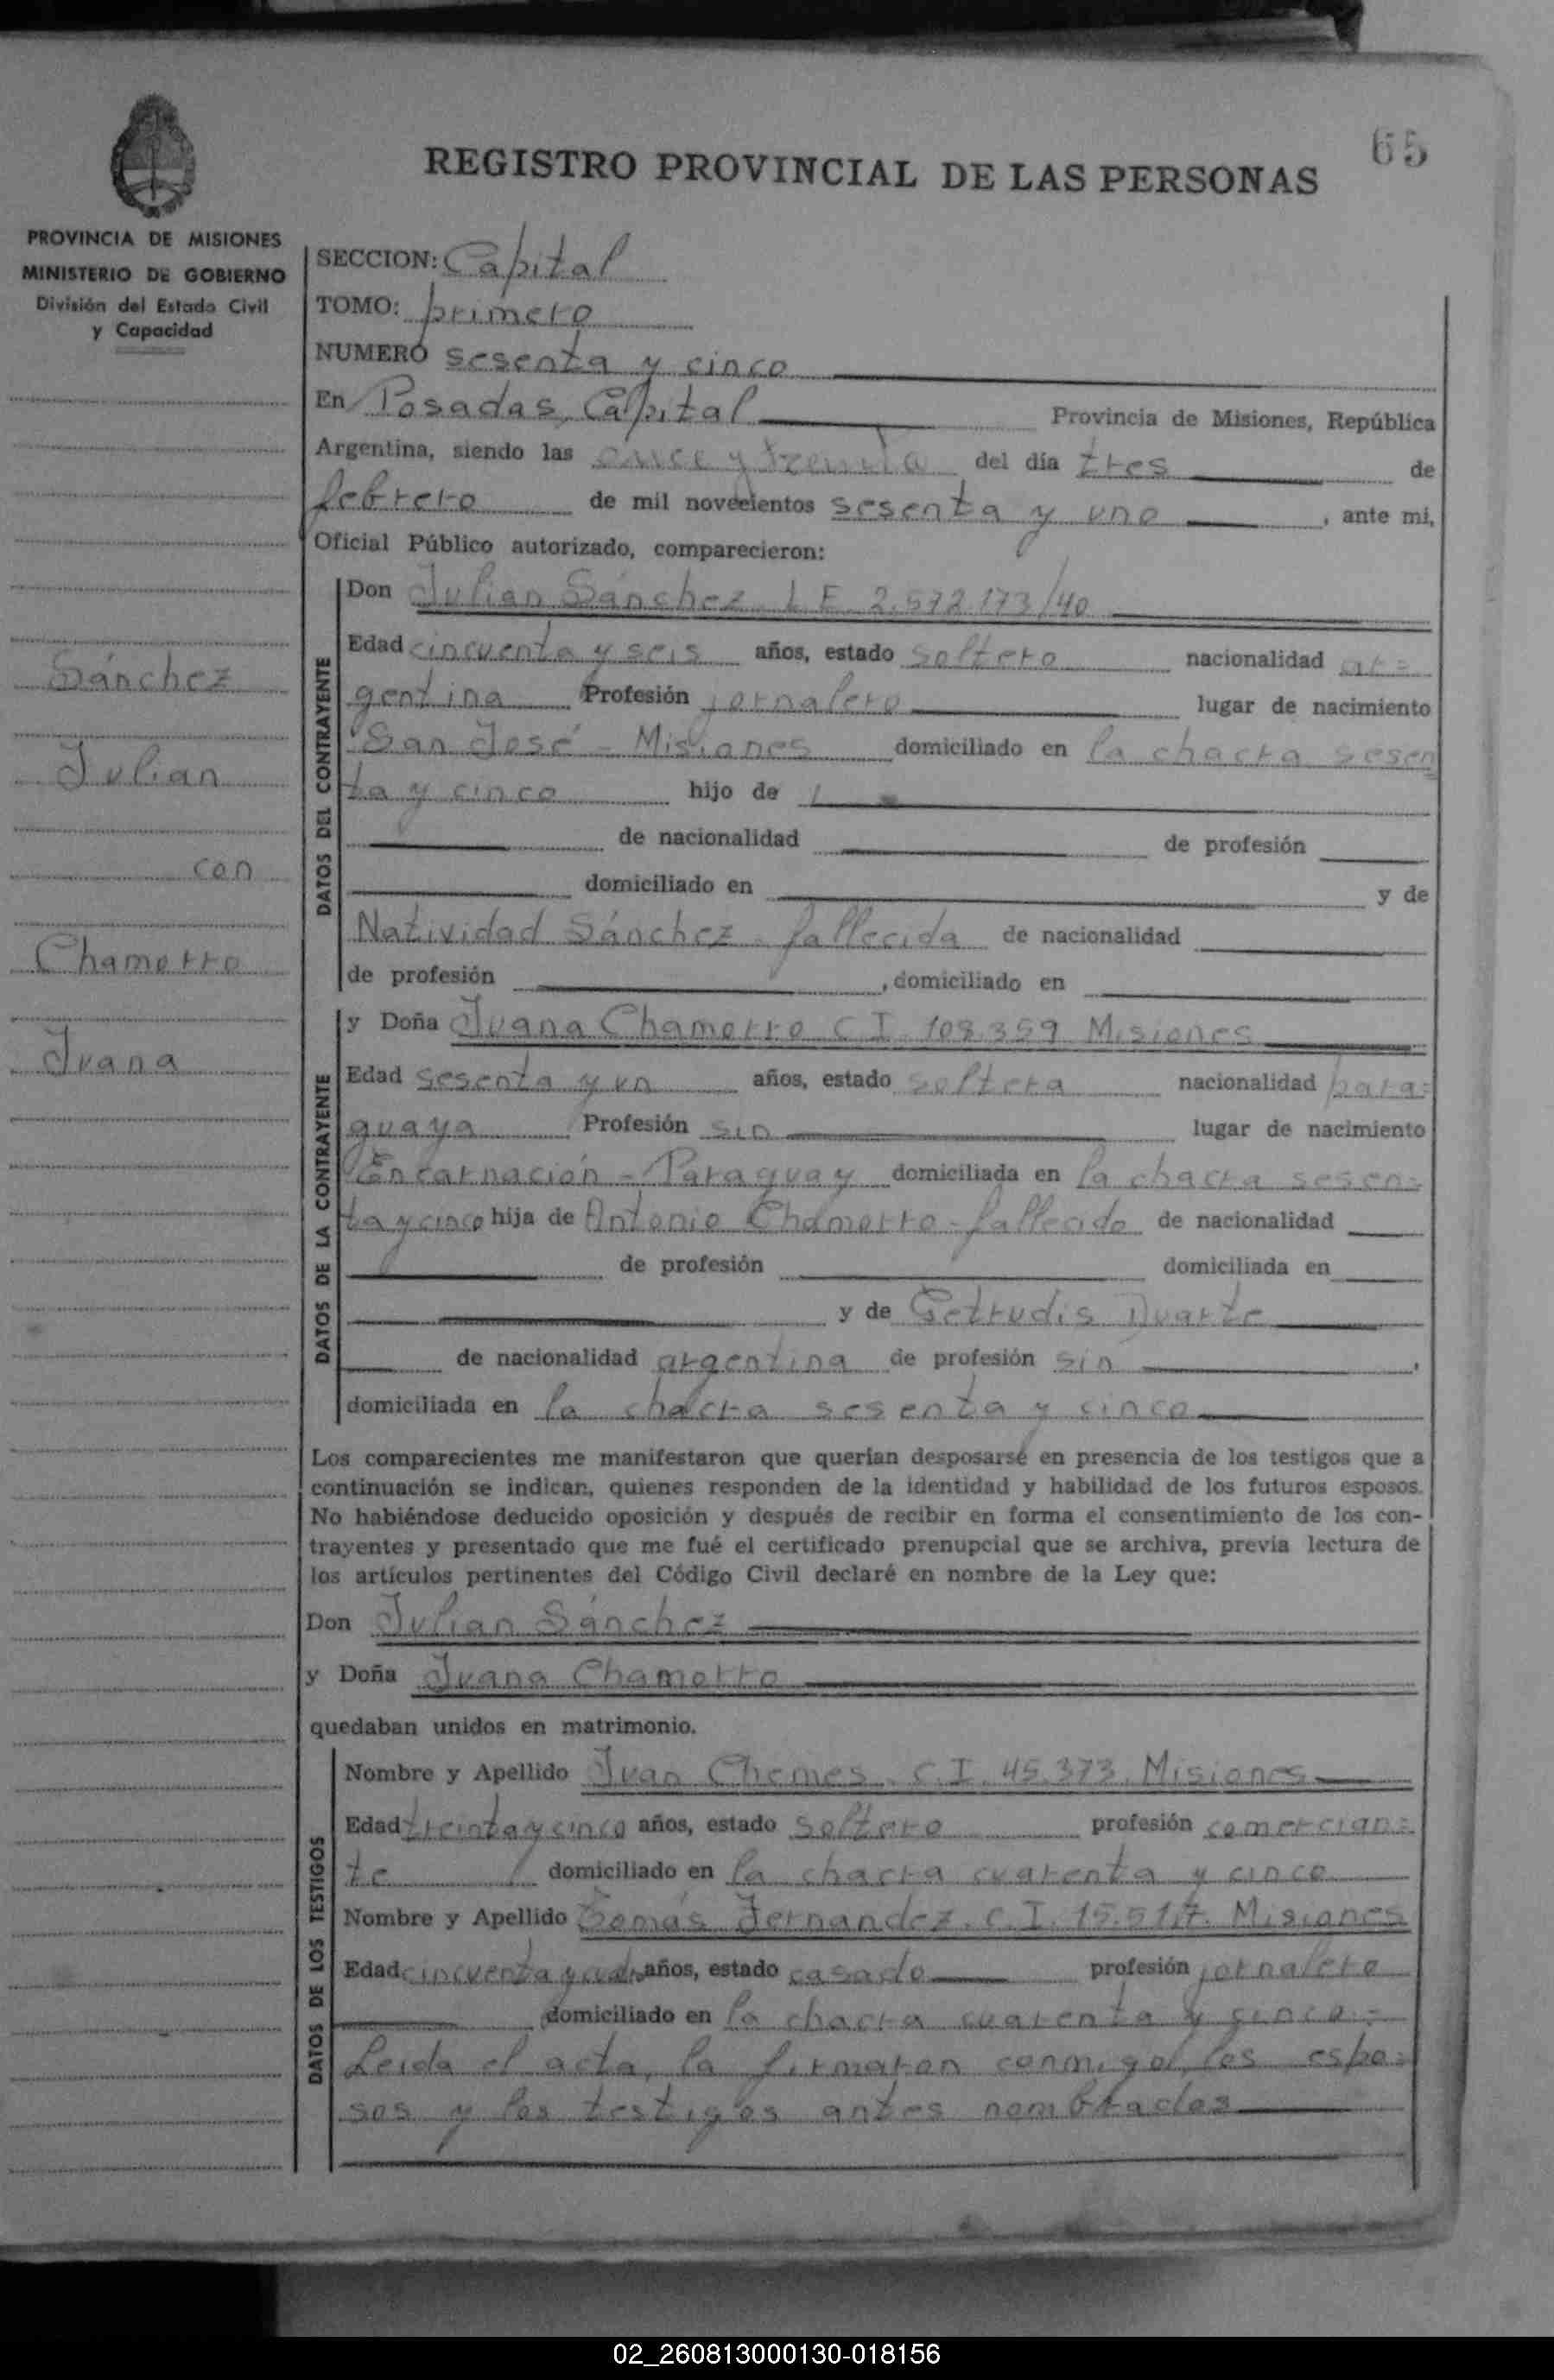 65
REGISTRO PROVINCIAL DE LAS PERSONAS
PROVINCIA DE MISIONES
MINISTERIO DE GOBIERNO
División del Estado Civil
y Capacidad
SECCION: Capital
TOMO: primero
NUMERO sesenta y cinco
En Posadas, Capital Provincia de Misiones, República
Argentina, siendo las once y treinta del día tres de
febrero de mil novecientos sesenta y uno, ante mi,
Oficial Público autorizado, comparecieron:
Sánchez
Julian
con
Chamorro
Juana
DATOS DEL CONTRAYENTE
Don Julian Sánchez L E 2.572.173/40
Edad cincuenta y seis años, estado soltero nacionalidad ar=
gentina Profesión jornalero lugar de nacimiento
San José - Misiones domiciliado en la chacra sesen
ta y cinco hijo de
de nacionalidad de profesión
domiciliado en y de
Natividad Sánchez - fallecida de nacionalidad
de profesión , domiciliado en
DATOS DE LA CONTRAYENTE
y Doña Juana Chamorro C I 108.359 Misiones
Edad sesenta y un años, estado soltera nacionalidad para=
guaya Profesión sin lugar de nacimiento
Encarnación - Paraguay domiciliada en la chacra sesen=
ta y cinco hija de Antonio Chamorro - fallecido de nacionalidad
de profesión domiciliada en
y de Getrudis Duarte
de nacionalidad argentina de profesión sin ,
domiciliada en la chacra sesenta y cinco
Los comparecientes me manifestaron que querían desposarse en presencia de los testigos que a
continuación se indican, quienes responden de la identidad y habilidad de los futuros esposos.
No habiéndose deducido oposición y después de recibir en forma el consentimiento de los con-
trayentes y presentado que me fué el certificado prenupcial que se archiva, previa lectura de
los artículos pertinentes del Código Civil declaré en nombre de la Ley que:
Don Julian Sánchez
y Doña Juana Chamorro
quedaban unidos en matrimonio.
DATOS DE LOS TESTIGOS
Nombre y Apellido Juan Chemes. C.I. 45.373. Misiones
Edad treinta y cinco años, estado soltero profesión comercian=
te domiciliado en la chacra cuarenta y cinco
Nombre y Apellido Tomás Fernandez. C.I. 15.517. Misiones
Edad cincuenta y años, estado casado profesión jornalero
domiciliado en la chacra cuarenta y cinco.=
Leida el acta, la firmaron conmigo, los espo=
sos y los testigos antes nombrados
02_260813000130-018156